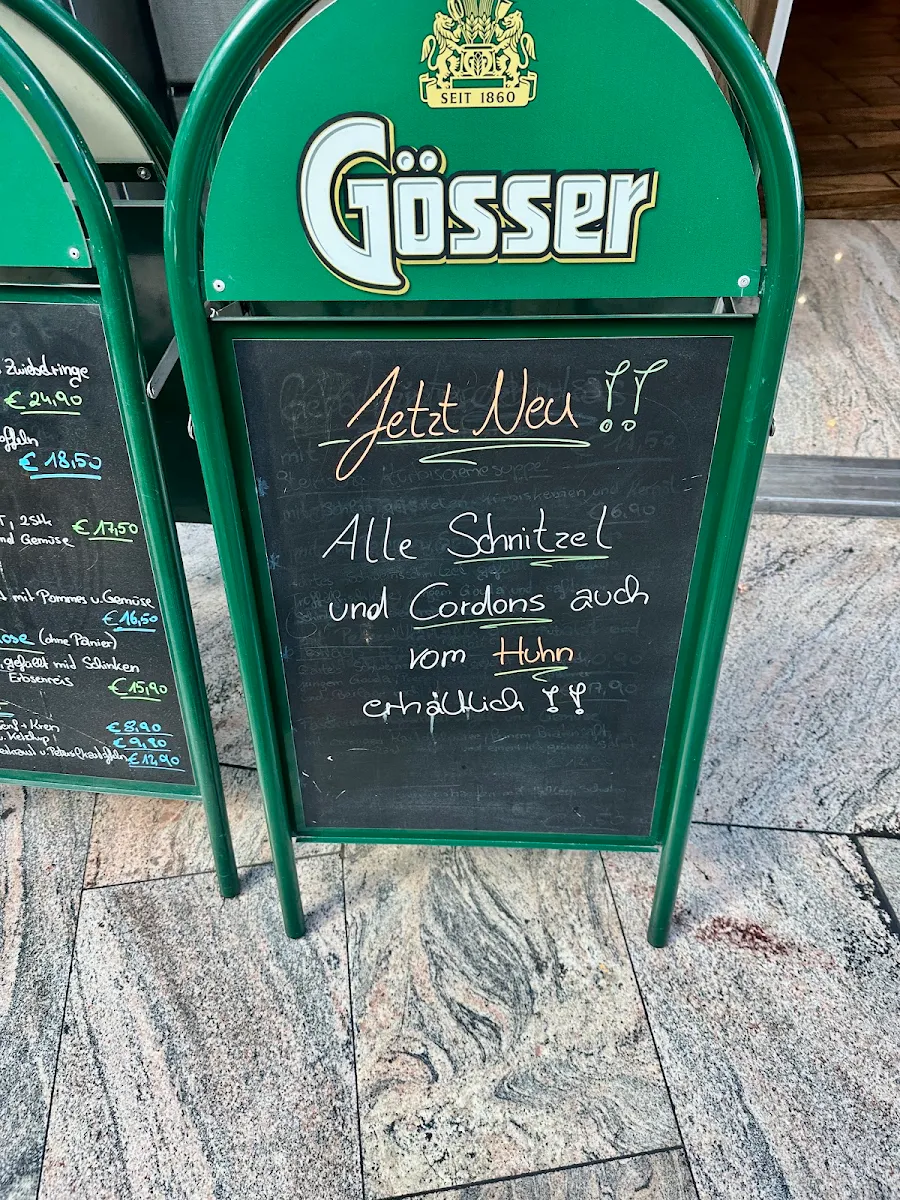 SEIT 1860
Gösser
Jetzt Neu !!
Alle Schnitzel
und Cordons auch
vom Huhn
erhältlich !!
Zwiebelringe
€ 24,90
€ 18,50
, 2Stk
€ 17,50
nd Gemüse
mit Pommes u. Gemüse
€ 16,50
(ohne Panier)
gefüllt mit Schinken
Erbsenreis
€ 15,90
Senf + Kren
€ 8,90
u. Ketchup
€ 9,80
€ 12,90